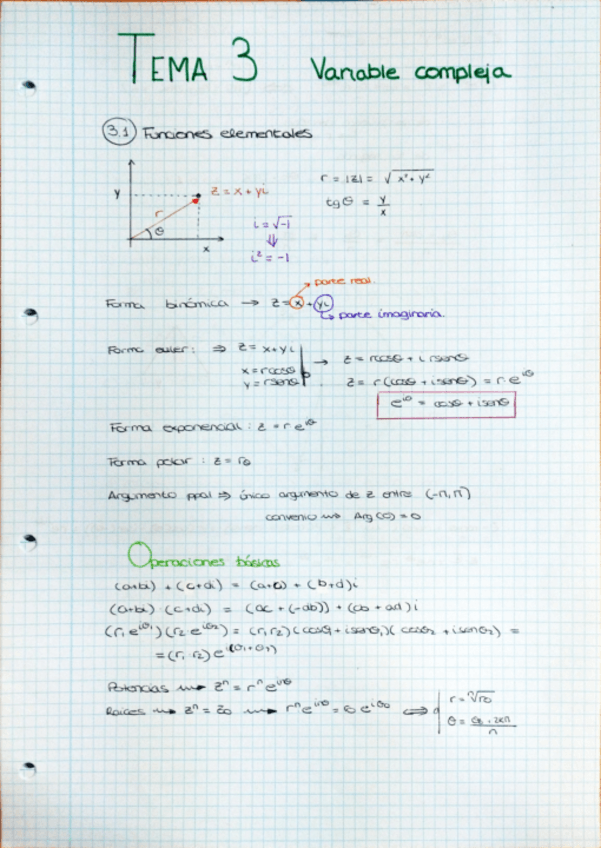 TEMA 3 Variable compleja
3.1 Funciones elementales
y z = x + yi
r θ
x
i = √-1
⇓
i² = -1
r = |z| = √x² + y²
tg θ = y/x
parte real.
Forma binómica → z = x + yi
parte imaginaria.
Forma euler: ⇒ z = x+yi → z = rcosθ + i rsenθ
x = rcosθ
y = rsenθ z = r(cosθ + isenθ) = r e^iθ
e^iθ = cosθ + isenθ
Forma exponencial : z = r e^iθ
Forma polar : z = rθ
Argumento ppal ⇒ único argumento de z entre (-π, π)
convenio ⟿ Arg(0) = 0
Operaciones básicas
(a+bi) + (c+di) = (a+c) + (b+d)i
(a+bi) · (c+di) = (ac + (-db)) + (cb + ad)i
(r₁ e^iθ₁)(r₂ e^iθ₂) = (r₁r₂)(cosθ₁ + isenθ₁)(cosθ₂ + isenθ₂) =
= (r₁ · r₂) e^i(θ₁+θ₂)
Potencias ⟿ zⁿ = rⁿ e^inθ
Raíces ⟿ zⁿ = z₀ ⟿ rⁿ e^inθ = e^iθ₀ ⇔ r = ⁿ√r₀
θ = θ₀ + 2kπ / n